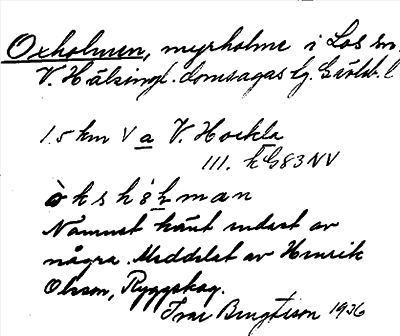 Oxholmen, myrholme i Los sn.
V. Hälsingl. domsagas tg. Gävleb. l
1.5 km V a V. Hockla
111. k G83 NV
òkshòḷman
Namnet känt endast av
några. Meddelat av Henrik
Olsson, Ryggskog.
Ivar Bengtsson 1936